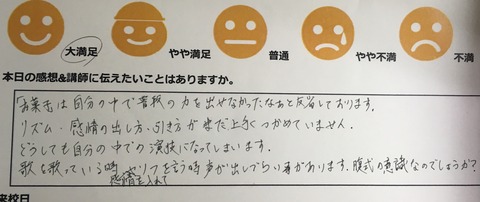 大満足 やや満足 普通 やや不満 不満
本日の感想&講師に伝えたいことはありますか。
言葉は自分の中で普段の力を出せなかったなあと反省しております。
リズム・感情の出し方、引き方が未だ上手くつかめていません。
どうしても自分の中での演技になってしまいます。
歌を歌っている時、感情を入れてセリフを言う時声が出しづらい事があります。腹式の意識なのでしょうか?
来校日